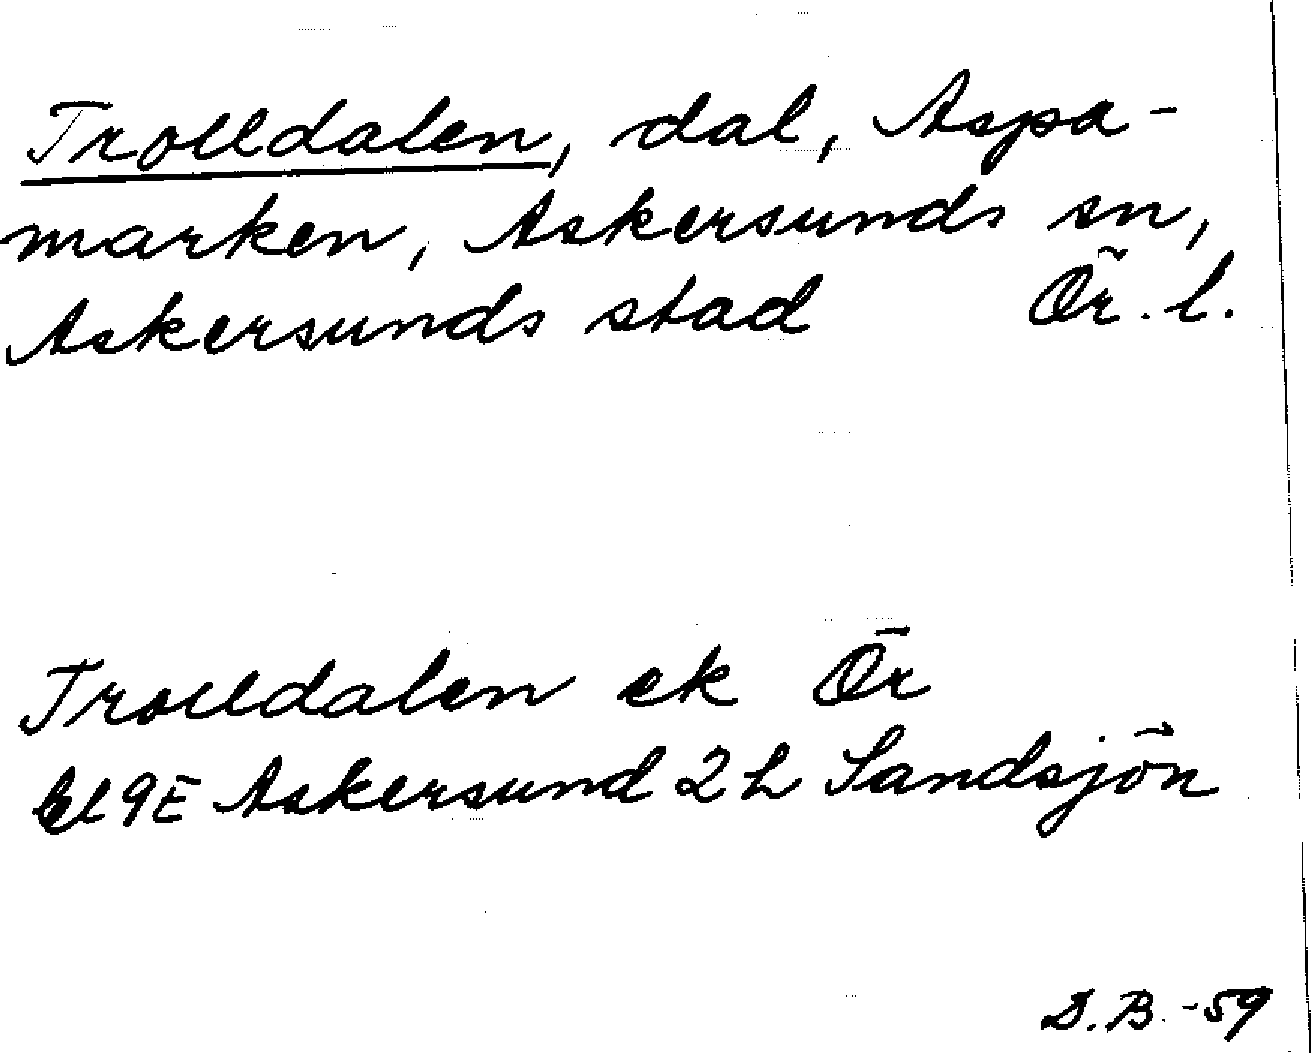 Trolldalen, dal, Aspa-
marken, Askersunds sn,
Askersunds stad Ör. l.
Trolldalen ek Ör
9E Askersund 2h Sandsjön
D.B. -59